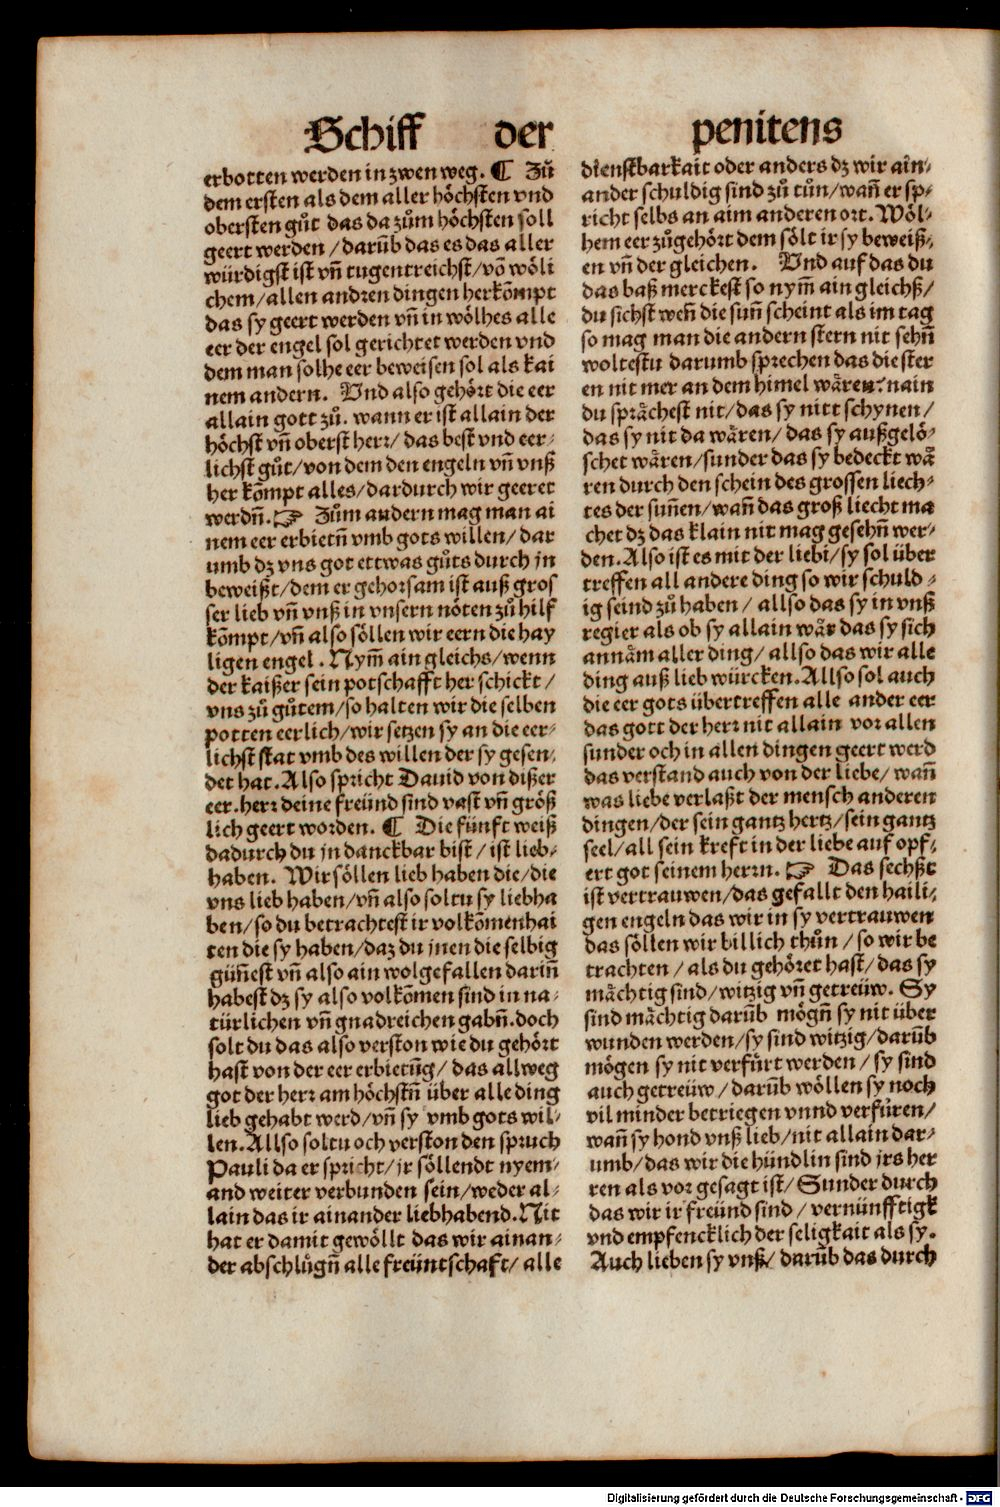 Schiff der penitens
erbotten werden in zwen weg. ¶ Zů
dem ersten als dem aller höchsten vnd
obersten gůt das da zům höchsten soll
geert werden / darūb das es das aller
würdigst ist vn̄ tugentreichst / vō wöli
chem / allen andren dingen herkōmpt
das sy geert werden vn̄ in wölhes alle
eer der engel sol gerichtet werden vnd
dem man solhe eer beweisen sol als kai
nem andern. Vnd also gehört die eer
allain gott zů. wann er ist allain der
höchst vn̄ oberst herr / das best vnd eer-
lichst gůt / von dem den engeln vn̄ vnß
her kōmpt alles / dardurch wir geeret
werdn̄. ☞ Zům andern mag man ai
nem eer erbietn̄ vmb gots willen / dar
umb dz vns got ettwas gůts durch jn
beweißt / dem er gehorsam ist auß gros
ser lieb vn̄ vnß in vnsern nöten zů hilf
kōmpt / vn̄ also söllen wir eern die hay
ligen engel. Nym̄ ain gleichs / wenn
der kaißer sein potschafft her schickt /
vns zů gůtem / so halten wir die selben
potten eerlich / wir setzen sy an die eer-
lichst stat vmb des willen der sy gesen-
det hat. Also spricht Dauid von dißer
eer. herr deine freünd sind vast vn̄ größ
lich geert worden. ¶ Die fünft weiß
dadurch du jn danckbar bist / ist lieb-
haben. Wir söllen lieb haben die / die
vns lieb haben / vn̄ also soltu sy liebha
ben / so du betrachtest ir volkōmenhai
ten die sy haben / daz du jnen die selbig
gün̄est vn̄ also ain wolgefallen darin̄
habest dz sy also volkōmen sind in na-
türlichen vn̄ gnadreichen gabn̄. doch
solt du das also verston wie du gehört
hast von der eer erbietūg / das allweg
got der herr am höchstn̄ über alle ding
lieb gehabt werd / vn̄ sy vmb gots wil-
len. Allso soltu och verston den spruch
Pauli da er spricht / jr söllendt nyem-
and weiter verbunden sein / weder al-
lain das ir ainander liebhabend. Nit
hat er damit gewöllt das wir ainan-
der abschlůgn̄ alle freüntschaft / alle
dienstbarkait oder anders dz wir ain-
ander schuldig sind zů tůn / wan̄ er sp-
richt selbs an aim anderen ort. Wöl-
hem eer zůgehört dem sölt ir sy beweiß-
en vn̄ der gleichen. Vnd auf das du
das baß merckest so nym̄ ain gleichß /
du sichst wen̄ die sun̄ scheint als im tag
so mag man die andern stern nit sehn̄
woltestu darumb sprechen das die ster
en nit mer an dem himel wären? nain
du sprächest nit / das sy nitt schynen /
das sy nit da wären / das sy außgelö-
schet wären / sunder das sy bedeckt wä
ren durch den schein des grossen liech-
tes der sun̄en / wan̄ das groß liecht ma
chet dz das klain nit mag gesehn̄ wer-
den. Also ist es mit der liebi / sy sol über
treffen all andere ding so wir schuld-
ig seind zů haben / allso das sy in vnß
regier als ob sy allain wär das sy sich
annäm aller ding / allso das wir alle
ding auß lieb würcken. Allso sol auch
die eer gots übertreffen alle ander eer
das gott der herr nit allain vor allen
sunder och in allen dingen geert werd
das verstand auch von der liebe / wan̄
was liebe verlaßt der mensch anderen
dingen / der sein gantz hertz / sein gantz
seel / all sein kreft in der liebe auf opf-
ert got seinem herrn. ☞ Das sechßt
ist vertrauwen / das gefallt den haili-
gen engeln das wir in sy vertrauwen
das söllen wir billich thůn / so wir be
trachten / als du gehöret hast / das sy
mächtig sind / witzig vn̄ getreüw. Sy
sind mächtig darūb mögn̄ sy nit über
wunden werden / sy sind witzig / darūb
mögen sy nit verfürt werden / sy sind
auch getreüw / darūb wöllen sy noch
vil minder betriegen vnnd verfüren /
wan̄ sy hond vnß lieb / nit allain dar-
umb / das wir die hündlin sind jrs her
ren als vor gesagt ist / Sunder durch
das wir ir freünd sind / vernünfftigk
vnd empfencklich der seligkait als sy.
Auch lieben sy vnß / darūb das durch
Digitalisierung gefördert durch die Deutsche Forschungsgemeinschaft - DFG